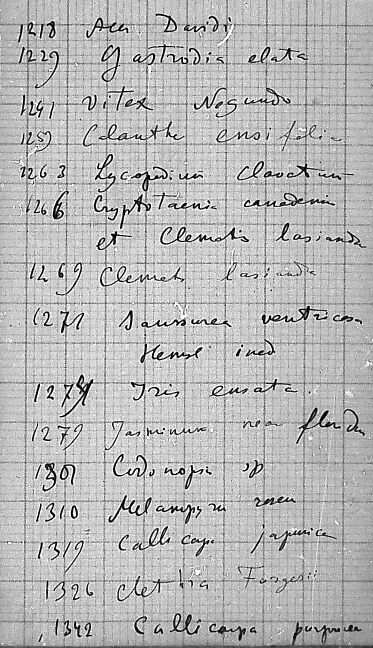 1218 Acer Davidi
1229 Gastrodia elata
1241 Vitex Negundo
1259 Calanthe ensifolia
1263 Lycopodium clavatum
1266 Cryptotaenia canadensis
et Clematis lasiandra
1269 Clematis lasiandra
1271 Saussurea ventricosa
Hemsl ined
1274 Iris ensata.
1279 Jasminum near floridum
1301 Codonopsis sp
1310 Melampyrum roseum
1319 Callicarpa japonica
1326 Clethra Fargesii
1342 Callicarpa purpurea